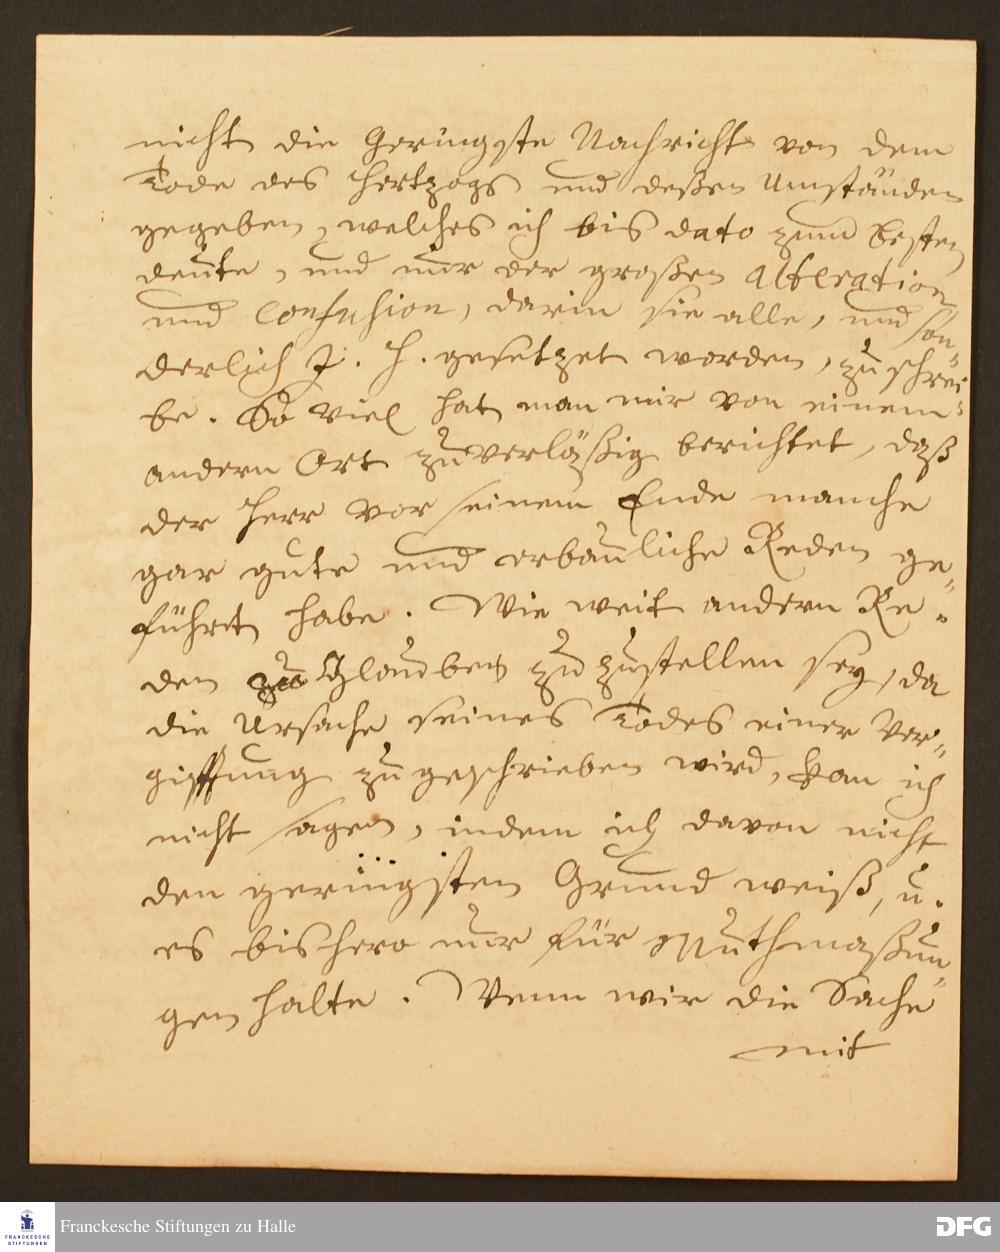 nicht die Geringste Nachricht von dem
Tode des Hertzogs und deßen Umständen
gegeben, welches ich bis dato zum besten
deute, und nur der großen alteration
und Confusion, darin sie alle, und son-
derlich J. H. gesetzet worden, zuschrei-
be. So viel hat man mir von einem
andern Ort zuverläßig berichtet, daß
der Herr vor seinem Ende manche
gar gute und erbauliche Reden ge-
führet habe. Wie weit andern Re-
den zu Glauben zuzustellen sey, da
die Ursache seines Todes einer Ver-
gifftung zugeschrieben wird, kan ich
nicht sagen, indem ich davon nicht
den geringsten Grund weiß, u.
es bishero nur für Muthmaßun-
gen halte. Wenn wir die Sache
mit
FRANCKESCHE
STIFTUNGEN
Franckesche Stiftungen zu Halle
DFG